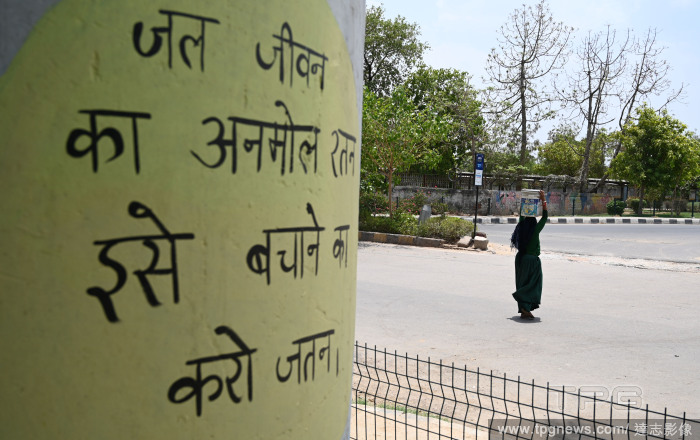 जल जीवन
का अनमोल रतन
इसे बचाने का
करो जतन।
TPG
www.tpgnews.com/ 達志影像